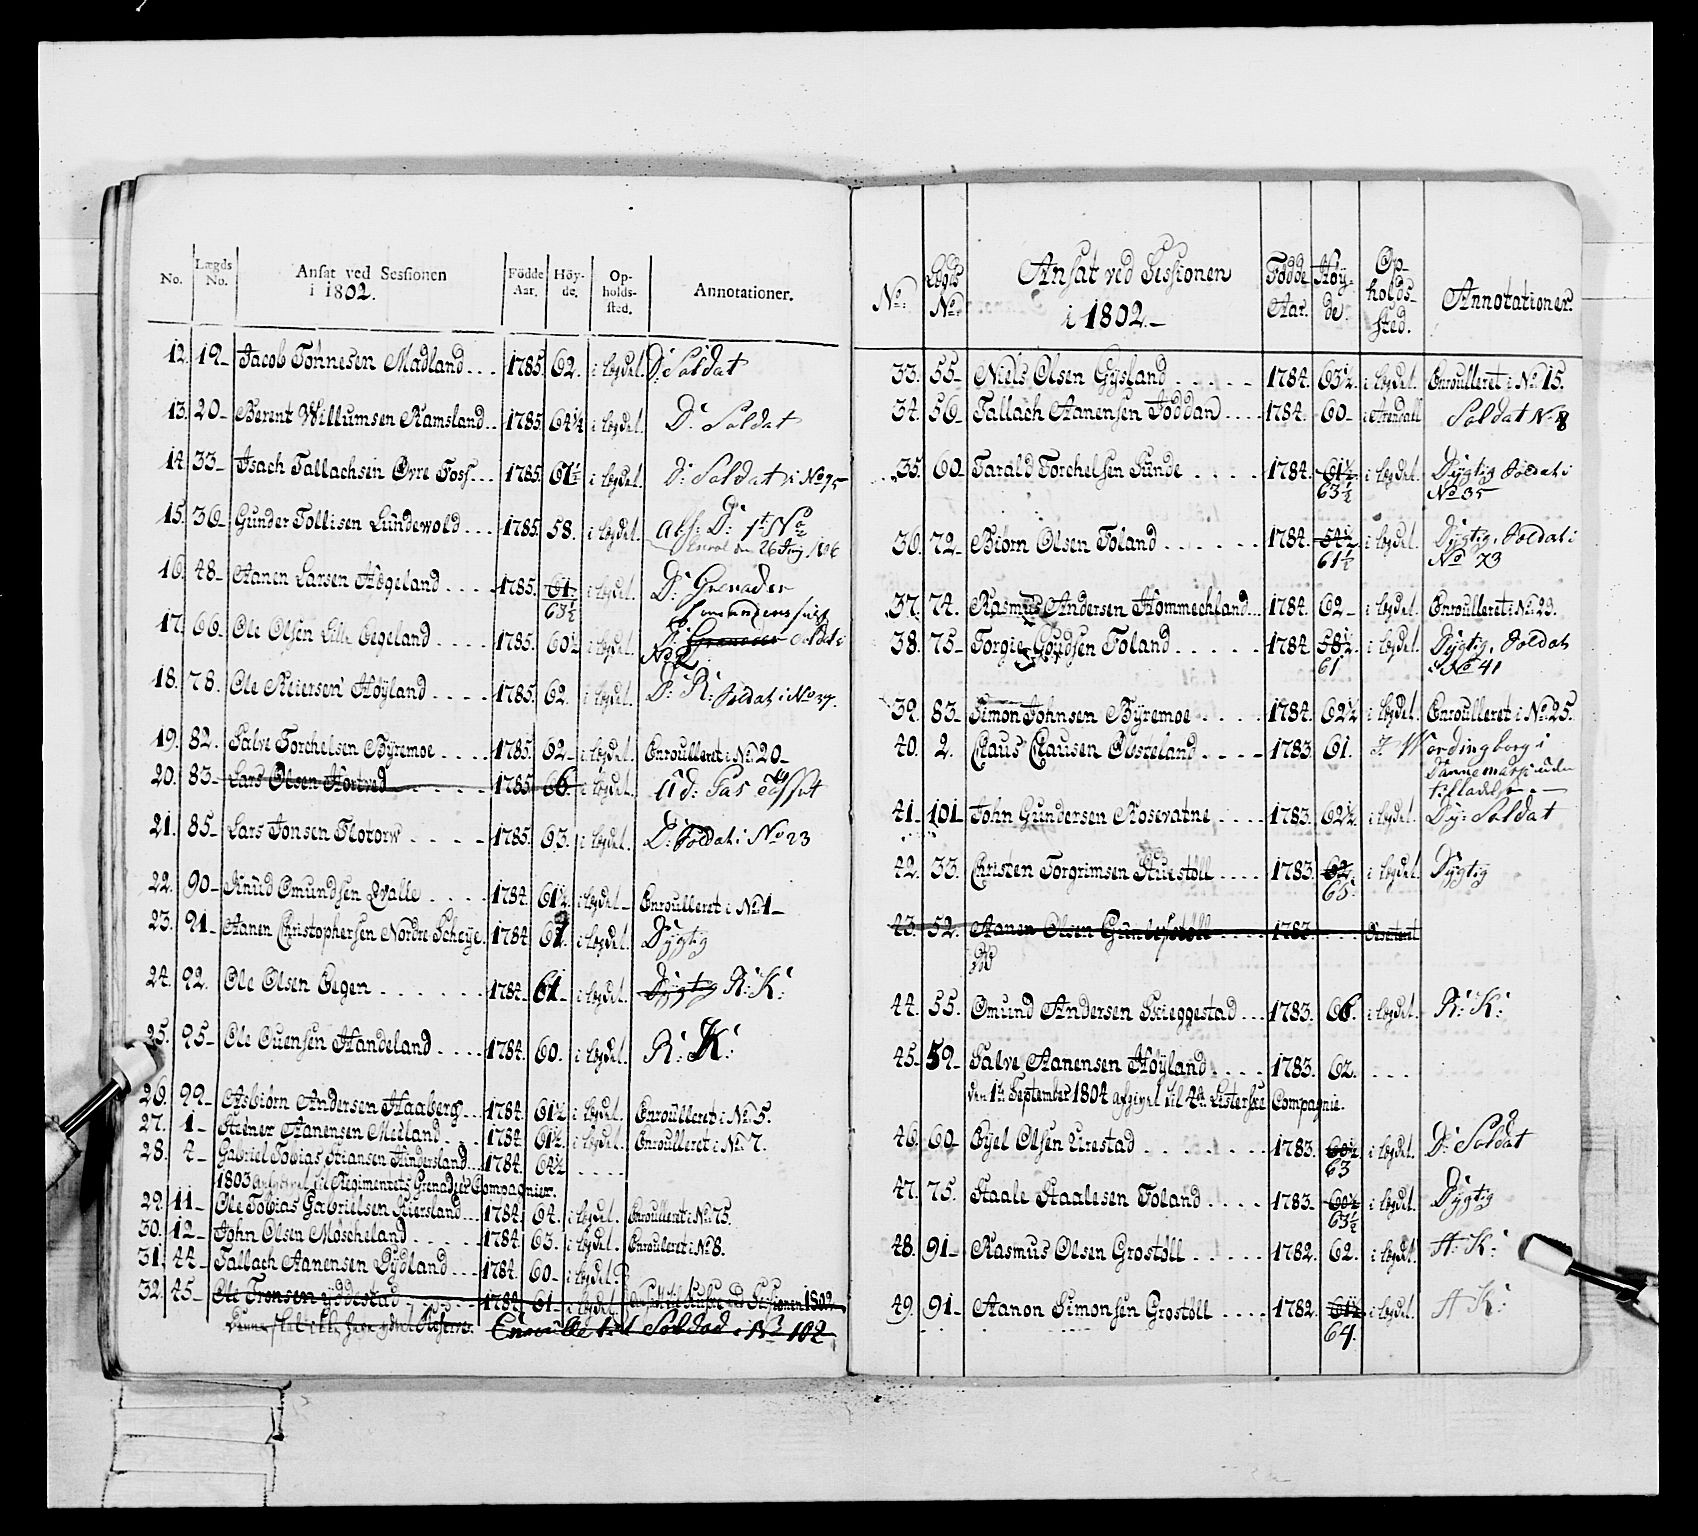 No. Lægds No. Ansat ved Sessionen i 1802. Födde Aar. Höyde. Opholdssted. Annotationer.
12. 19 – Jacob Tönnesen Madland . . . 1785. 62. i lægdet. D: Soldat
13. 20 – Berent Willumsen Ramsland . . 1785. 64¼ i lægdet. D: Soldat
14. 33 – Isach Tallachsen Øvre Foss . . . 1785. 61½ i lægdet. D: Soldat i No 95
15. 36 – Gunder Tollisen Lundewold . . . 1785. 58. i lægdet.
16. 48 – Aanen Larsen Högeland . . . . 1785. 61½ 63½ i lægdet. D: Grenader
17. 66 – Ole Olsen Lille Eegeland . . . . 1785. 60½ i lægdet. D: Grenader Soldat i No 2
18. 78. Ole Reiersen Höyland . . . . 1785. 62. i lægdet. D: R: Soldat i No 27.
19. 82. Salve Torchelsen Byremoe . . . . 1785. 62 – i lægdet. Enroulleret i No. 20 –
20. 83 – Lars Olsen Hortved . . . . . 1785 66. i lægdet. Ud: Pas
21. 85 – Lars Jonsen Flotorw . . . . . 1785. 63. i lægdet. D: Soldat i No 23
22. 90 – Knud Omundsen Qvalle . . . . 1784. 61½ i lægdet – Enroulleret i No. 1 –
23. 91 – Aanen Christophersen Nordre Scheije. 1784. 61 i lægdet. Dygtig
24. 92. Ole Olsen Eegen . . . . . . 1784. 61 – i lægdet. Dygtig R: K:
25. 95 – Ole Ouensen Handeland . . . . 1784. 60. i lægdet. R: K:
26. 99 – Asbiörn Andersen Haaberg . . . 1784. 61½ i lægdet. Enroulleret i No. 5.
27. 1 – Steener Aanensen Meeland . . . 1784. 61½ i lægdet. Enroulleret i No. 7.
28. 4 – Gabriel Tobias Stiansen Hindersland . . 1784. 64½ . . . .
1803 afgivet til Regimentets Grenadeer Compagnier.
29. 11 – Ole Tobias Gabrielsen Kiersland . . . 1784. 64. i lægdet. Enroulleret i No. 75.
30. 12 – John Olsen Möscheland . . . . . 1784. 63. i lægdet. Enrouleret i No 8.
31. 44 – Tallach Aanensen Lydland . . . 1784. 60 – i lægdet.
32. 45 – Ole Tronsen yddestad . . . . . 1784. 61 – i lægdet. Ansatt til Kudsk ved Sessionen 1802
Enroulleret Soldad i No 102
No: Lægds No. Ansat ved Sessionen i 1802. – Födde Aar. Höyde. Opholdssted. Annotationer.
33. 55 – Niels Olsen Gysland . . . . . 1784. 63½ i lægdet. Enroulleret i No. 15.
34. 56 – Tallach AanensenFöddan . . . . 1784. 60 – i Arendall Soldat No 8
35. 60 Tarald Torchelsen Sunde . . . . 1784. 61½ 63½ i lægdet. Dygtig Soldat i No 35
36. 72 – Biörn Olsen Foland . . . . . . 1784. 54½ 61½ i lægdet. Dygtig. Soldat i No 73
37. 74. Rasmus Andersen Hommechland . . . 1784. 62 – i lægdet. Enroulleret i No. 29.
38. 75 – Torgie Goudsen Foland . . . . . 1784 58½ 61 i lægdet. Dygtig. Soldat No 41
39. 83 – Simon Johnsen Byremoe . . . . 1784. 62½ i lægdet. Enroulleret i No. 25.
40. 2. Claus Clausen Qvsteland . . . . 1783. 61. I Wordingborg i Dannemark uden tilladelse
41 – 101 – John Gundersen Rosevatne . . . . 1783. 62½ i lægdet. Dy: Soldat
42. 33. Christen Torgrimsen Stuestöll . . . . 1783. 62. 65. i lægdet. Dygtig
43. 52. Aanen Olsen Gunlefstöll . . . . 1783. . . . Deserteret
44. 55. Omund Andersen Skieggestad . . . 1783. 66. i lægdet. R: K:
45 – 59 – Salve Aanensen Höyland . . . . 1783. 62. . . .
den 1te September 1804 afgivet til 4de Listerske Compagnie.
46. 60 – Eyel Olsen Lirestad . . . . . . 1783. 60½ 63 i lægdet. D: Soldat
47. 75. Staale Staalesen Foland . . . . 1783. 60½ 63½ i lægdet. Dygtig
48. 91 – Rasmus Olsen Grostöll . . . . . 1782. 62. i lægdet. A: K:
49. 91 – Aanon Simonsen Grostöll . . . . 1782. 61½ 64. i lægdet. A K: